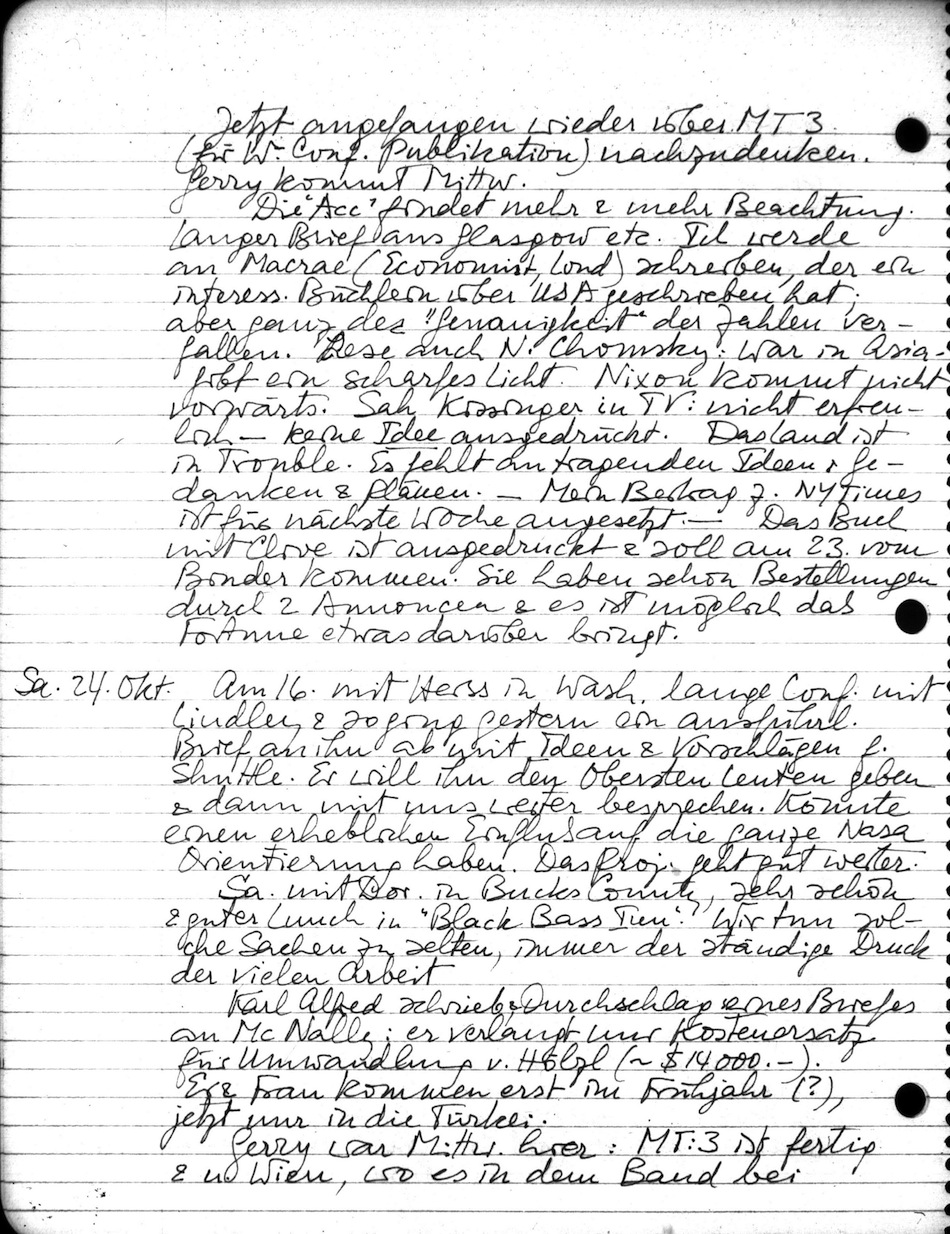 Jetzt angefangen wieder über MT 3
(für W. Conf. Publikation) nachzudenken.
Gerry kommt Mittw.
Die "Acc" findet mehr & mehr Beachtung.
Langer Brief aus Glasgow etc. Ich werde
an Macrae (Economist, Lond) schreiben, der ein
interess. Büchlein über USA geschrieben hat;
aber ganz der "Genauigkeit" der Zahlen ver-
fallen. Lese auch N. Chomsky: war in Asia-
gibt ein scharfes Licht. Nixon kommt nicht
vorwärts. Sah Kissinger in TV: nicht erfreu-
lich — keine Idee ausgedrückt. Das Land ist
in Trouble. Es fehlt an tragenden Ideen, Ge-
danken & Plänen. — Mein Beitrag z. NYTimes
ist für nächste Woche angesetzt. — Das Buch
mit Clive ist ausgedruckt & soll am 23. vom
Binder kommen. Sie haben schon Bestellungen
durch 2 Annoncen & es ist möglich das
Fortune etwas darüber bringt.
Sa. 24. Okt. Am 16. mit Heiss in Wash. lange Conf. mit
Lindley & so ging gestern ein ausführl.
Brief an ihn ab mit Ideen & Vorschlägen f.
Shuttle. Er will ihn den Obersten Leuten geben
& dann mit uns weiter besprechen. Könnte
einen erheblichen Einfluß auf die ganze Nasa
Orientierung haben. Das Proj. geht gut weiter.
Sa. mit Dor. in Bucks County, sehr schön
& guter Lunch in "Black Bass Inn". Wir tun sol-
che Sachen zu selten, immer der ständige Druck
der vielen Arbeit
Karl Alfred schrieb & Durchschlag eines Briefes
an McNally: er verlangt nur Kostenersatz
für Umwandlung v. Hölzl (~ $14000.-).
Er & Frau kommen erst im Frühjahr (?),
jetzt nur in die Türkei.
Gerry war Mittw. hier: MT:3 ist fertig
& in Wien, wo es in dem Band bei